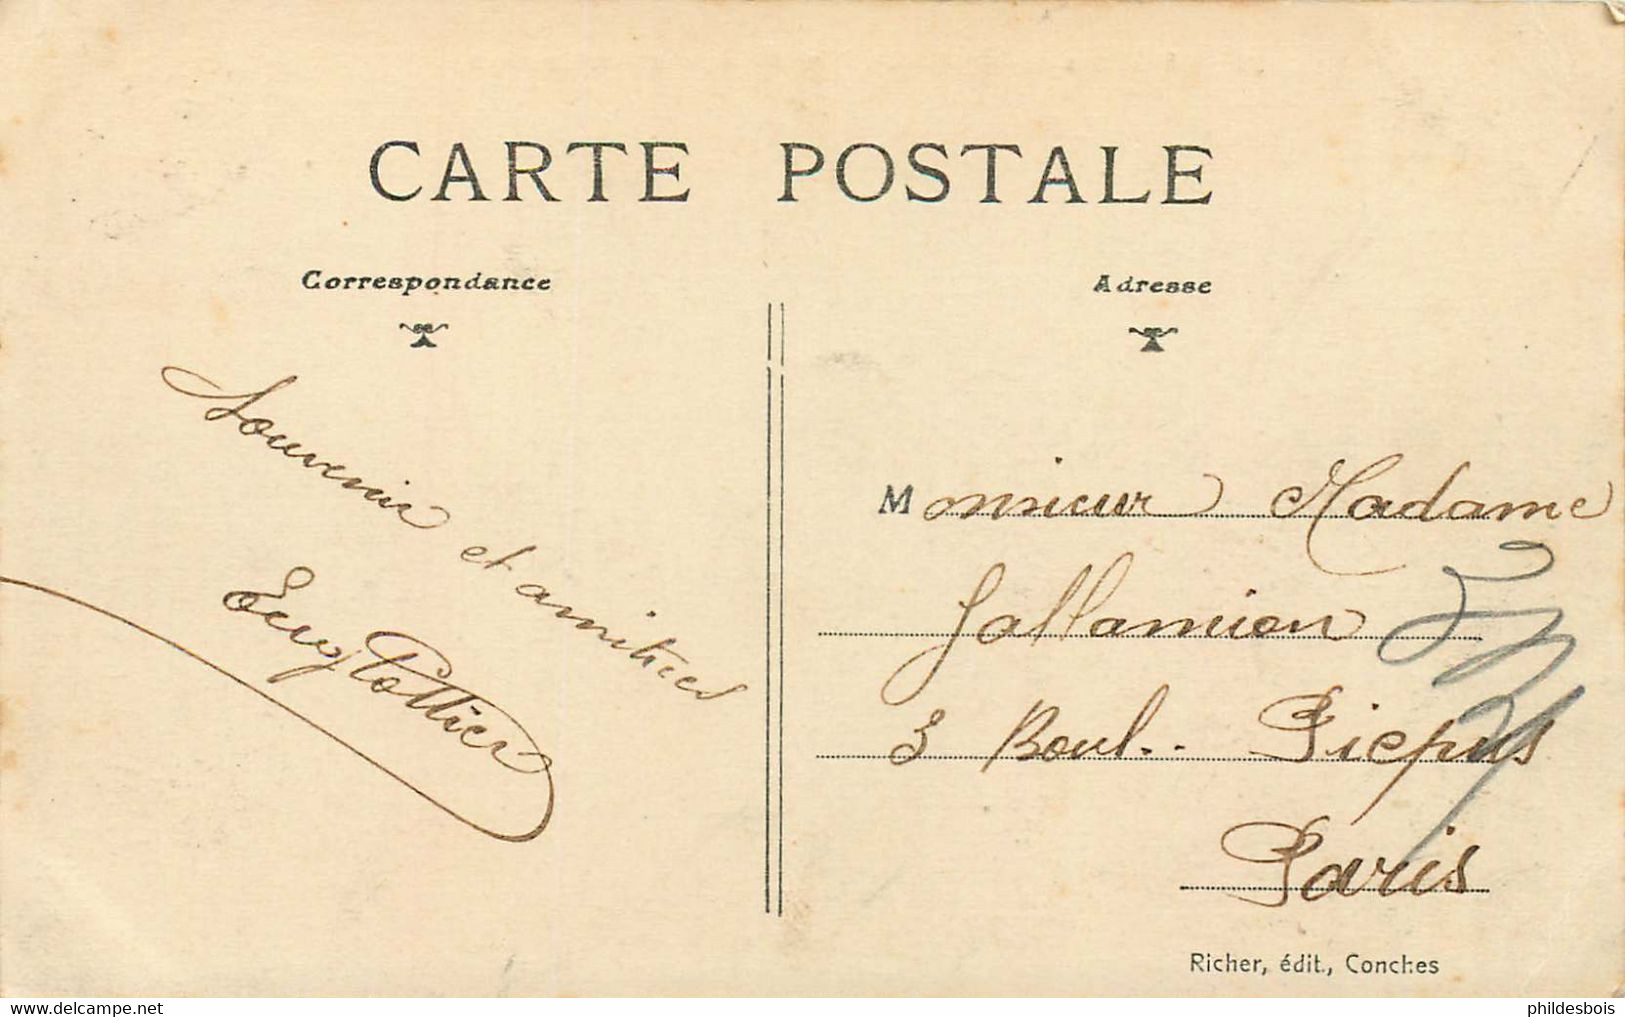 CARTE POSTALE
Correspondance
Adresse
Souvenir
et amitiées
Eug Pottier
Monsieur Madame
Jallamion
3 Boul.. Picpus
Paris
Richer, édit., Conches
www.delcampe.net
phildesbois